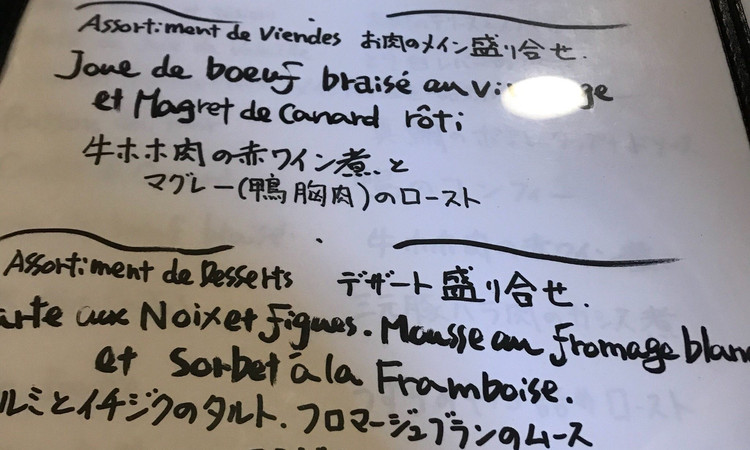 Assortiment de Viendes お肉のメイン盛り合せ.
Joue de boeuf braisé au
et Magret de Canard rôti
牛ホホ肉の赤ワイン煮.と
マグレー(鴨胸肉)のロースト
Assortiment de Desserts デザート盛り合せ.
aux Noix et figues. Mousse au fromage
et Sorbet à la Framboise.
ルミとイチジクのタルト.フロマージュブランのムース